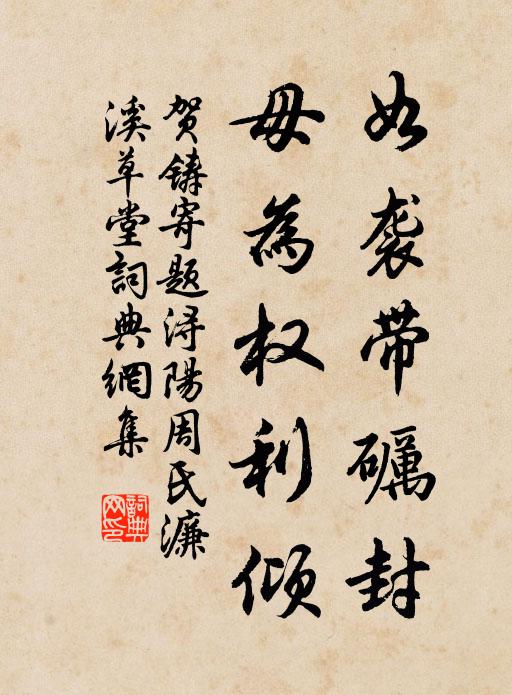 如袭带礪封
毋為权利倾
贺鑄寄题浔陽周氏濂
溪草堂詞典網集
詞典網印